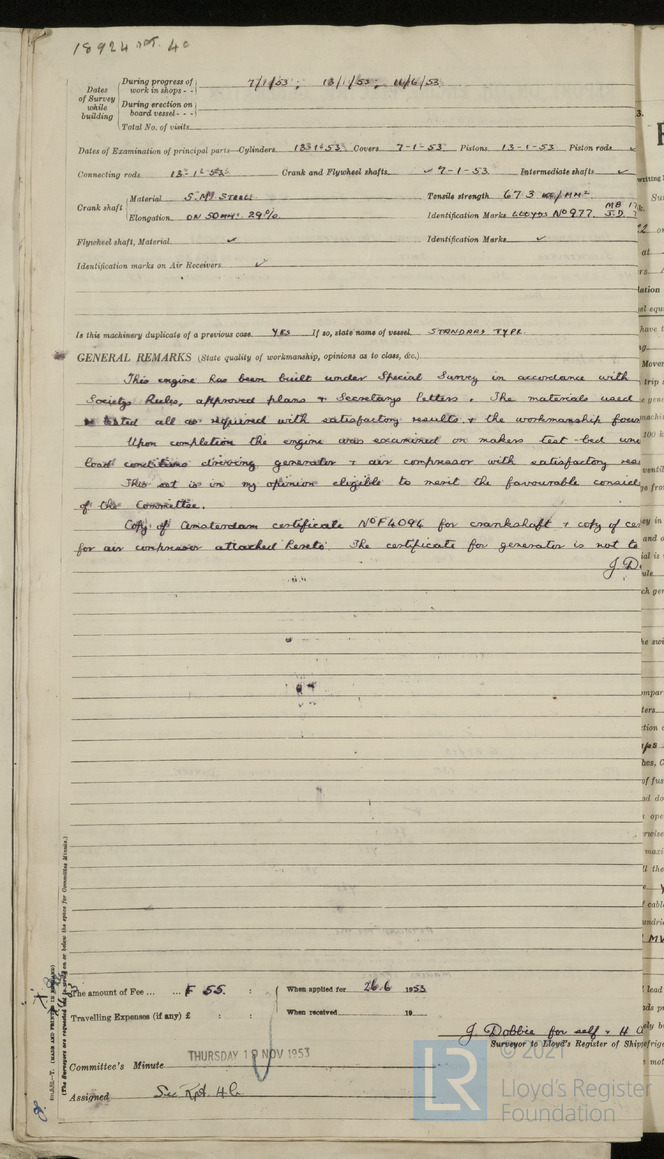 18924 Rpt. 4c
Dates of Survey while building
During progress of work in shops - - 7/1/53; 13/1/53; 11/6/53
During erection on board vessel - - -
Total No. of visits
Dates of Examination of principal parts—Cylinders 13-1-53 Covers 7-1-53. Pistons 13-1-53 Piston rods ✓
Connecting rods 13-1-53 Crank and Flywheel shafts ✓ 7-1-53. Intermediate shafts ✓
Crank shaft Material S.M. STEEL Tensile strength 67.3 KG/MM²
Elongation ON 50 MM: 29% Identification Marks LLOYDS No 977. MB J.D.
Flywheel shaft, Material ✓ Identification Marks ✓
Identification marks on Air Receivers ✓
Is this machinery duplicate of a previous case YES If so, state name of vessel STANDARD TYPE.
GENERAL REMARKS (State quality of workmanship, opinions as to class, &c.)
This engine has been built under Special Survey in accordance with
Societys Rules, approved plans & Secretarys letters. The materials used
tested all as required with satisfactory results & the workmanship
Upon completion the engine was examined on makers test-bed
load conditions driving generator & air compressor with satisfactory
This set is in my opinion eligible to merit the favourable
of the Committee.
Copy of Amsterdam certificate No F4094 for crankshaft & copy of
for air compressor attached hereto. The certificate for generator is not to
J.D.
The amount of Fee ... ... F 55. : When applied for 26.6 1953
Travelling Expenses (if any) £ : : When received 19
J. Dobbie for self & H.
Surveyor to Lloyd's Register of Ship
Committee's Minute THURSDAY 19 NOV 1953
Assigned See Rpt. 4b
(MADE AND PRINTED IN ENGLAND)
(The Surveyors are requested not to write on or below the space for Committee Minute.)
LR
© 2021
Lloyd's Register
Foundation